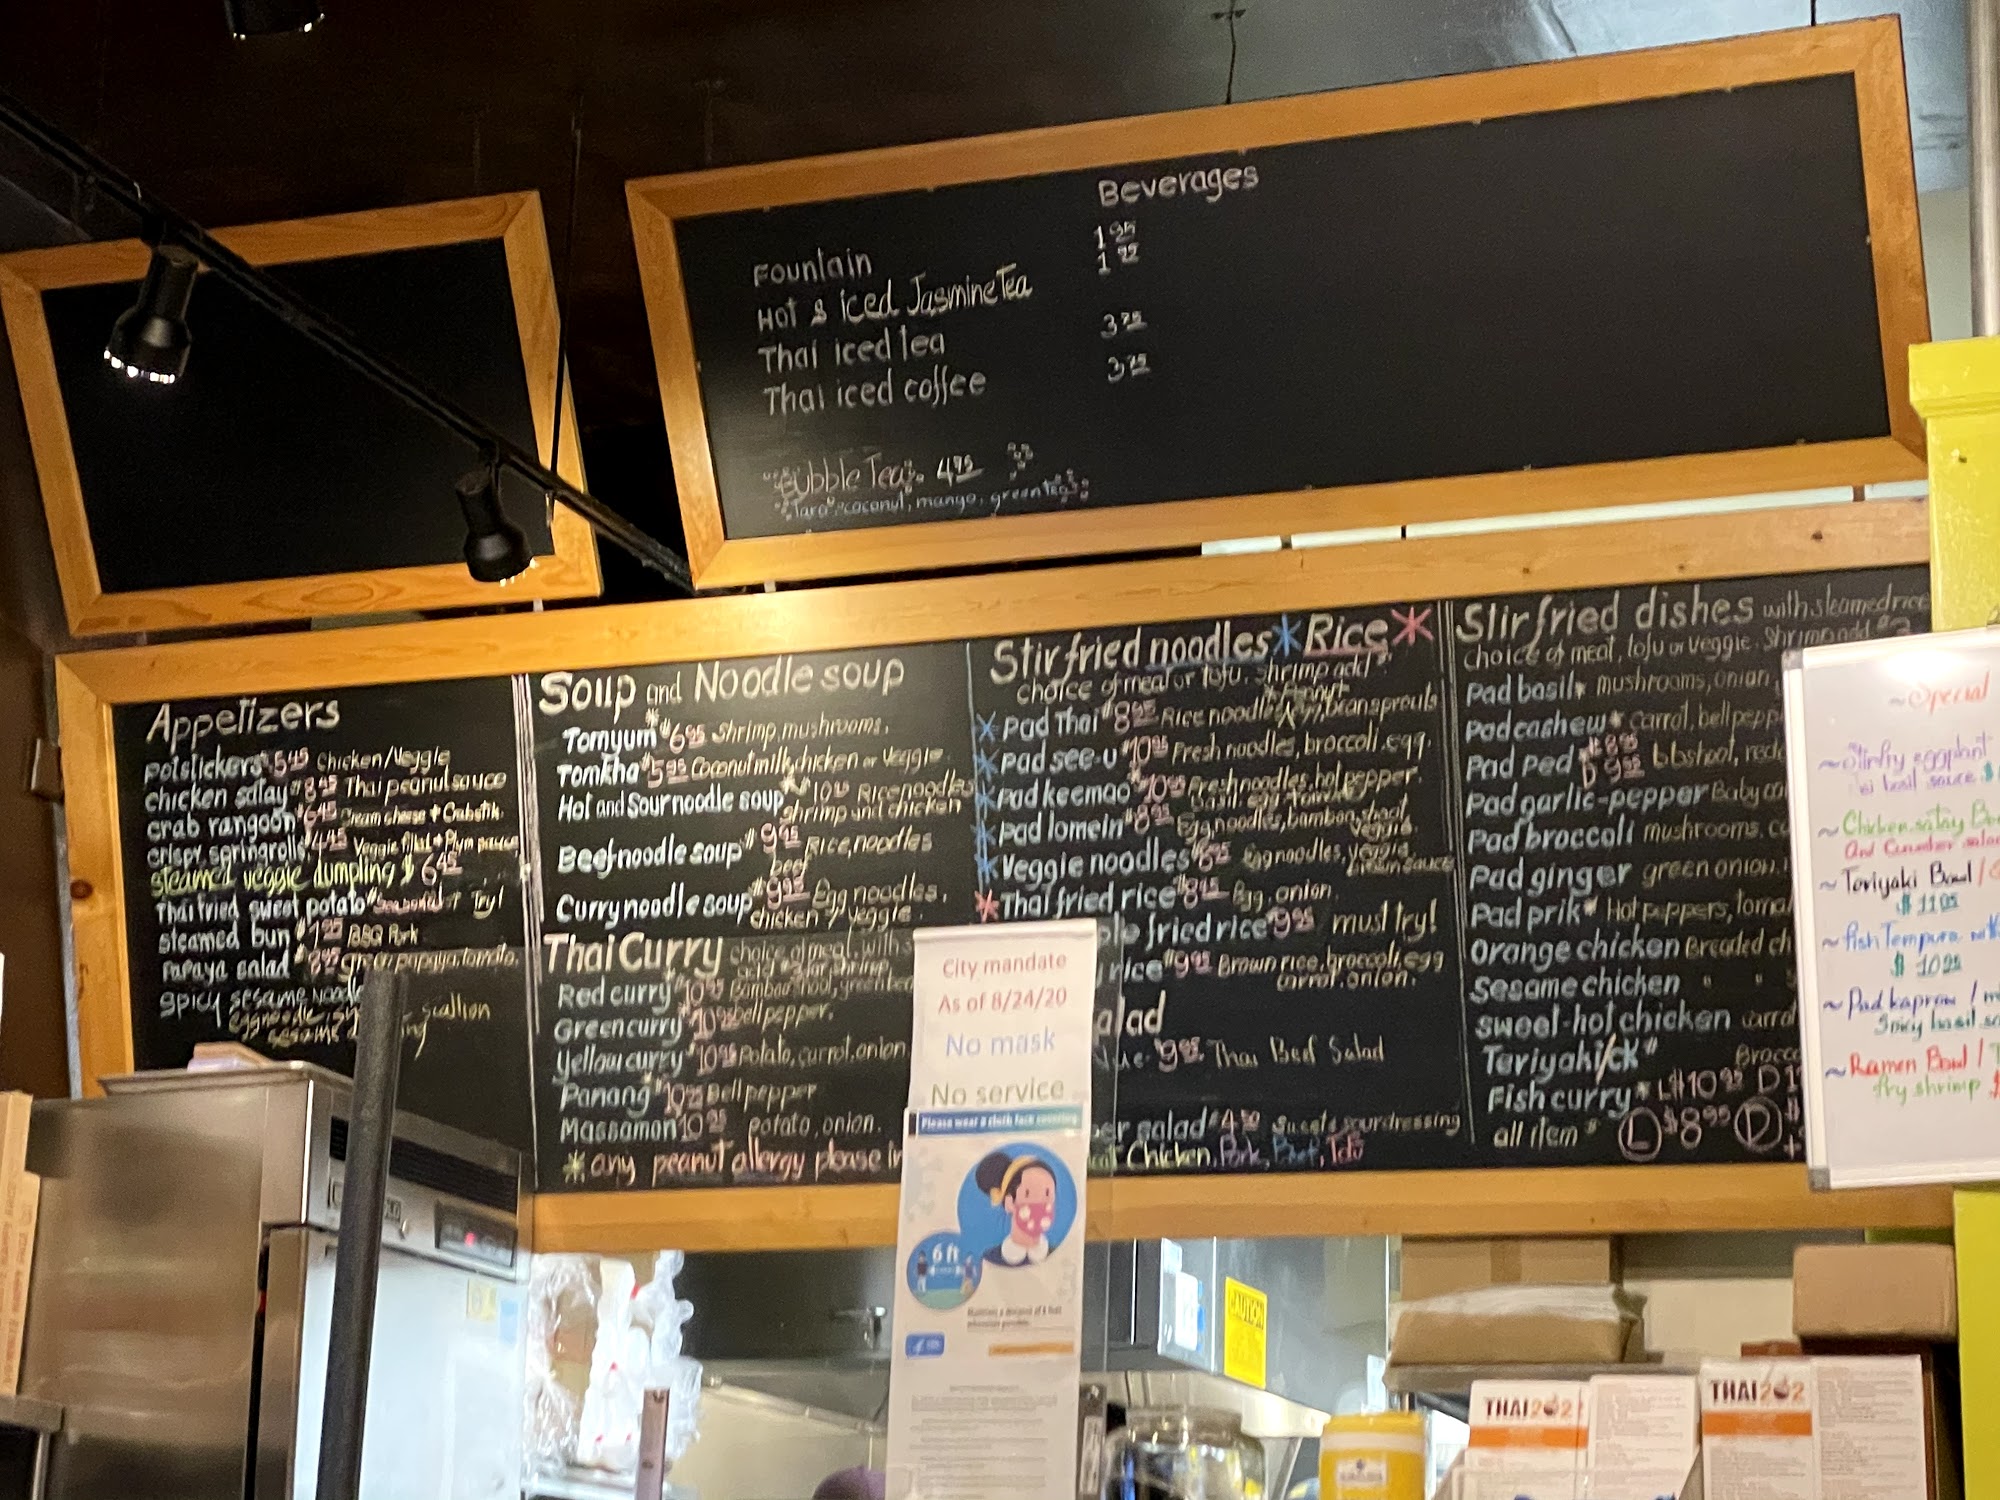 Beverages
Fountain 1 95
Hot & iced Jasmine Tea 1 95
Thai iced tea 3 75
Thai iced coffee 3 75
Bubble Tea 4 95
Taro, coconut, mango, green tea
Appetizers
potstickers Chicken/Veggie
chicken satay $8 45 Thai peanut sauce
crab rangoon $6 45 Cream cheese + Crabstik
crispy springrolls $4 45 Veggie filled + Plum sauce
steamed veggie dumpling $6 45
Thai fried sweet potato Seasonal Try!
steamed bun $1 95 BBQ Pork
Papaya salad $8 95 green papaya, tomato.
Spicy sesame
scallion
Soup and Noodle soup
Tomyum $6 95 Shrimp, mushrooms.
Tomkha $5 95 Coconut milk, chicken or Veggie.
Hot and Sour noodle soup Rice noodles
shrimp and chicken
Beef noodle soup Rice, noodles
beef
Curry noodle soup $9 95 Egg noodles,
chicken / veggie.
Thai Curry choice of meat, with
Red curry $10 95
Green curry $10 95 bell pepper.
Yellow curry $10 95 Potato, carrot, onion
Panang $10 95 Bell pepper
Massamon 10 95 potato, onion.
* any peanut allergy please in
Stir fried noodles * Rice *
choice of meat or tofu. shrimp add
Peanut
* Pad Thai $8 95 Rice noodle, egg, bean sprouts
* pad see-u $10 95 Fresh noodles, broccoli, egg.
* pad keemao $10 95 Fresh noodles, hot pepper,
basil, egg, tomato
* pad lomein $8 95 Egg noodles, bamboo shoot
veggie.
* Veggie noodles $8 95 Egg noodles, veggie
brown sauce
* Thai fried rice Egg, onion.
le fried rice 9 95 must try!
rice $9 95 Brown rice, broccoli, egg
carrot, onion.
alad
$9 95 Thai Beef Salad
er salad $4 50 Sweet & sour dressing
Chicken, Pork, Beef, Tofu
Stir fried dishes with steamed rice
choice of meat, tofu or veggie. Shrimp add $2
Pad basil* mushrooms, onion,
Pad cashew* Carrot, bell pepp
Pad Ped
Pad garlic-pepper Baby co
Pad broccoli mushrooms, c
Pad ginger green onion,
Pad prik* Hot peppers, toma
Orange chicken Breaded ch
Sesame chicken " "
Sweet-hot chicken carro
Teriyaki/ck Brocco
Fish curry* L $10 95 D 1
all item L $8 95 D
~Special
~ Stirfry eggplant
w/ basil sauce $
~ Chicken satay Bo
And Cucumber salad
~ Teriyaki Bowl /
$ 11 95
~ fish Tempura
$ 10 95
~ Pad kaprow /
Spicy basil sa
~ Ramen Bowl / T
fry shrimp
City mandate
As of 8/24/20
No mask
No service
Please wear a cloth face covering
6 ft
CAUTION
THAI202
THAI202